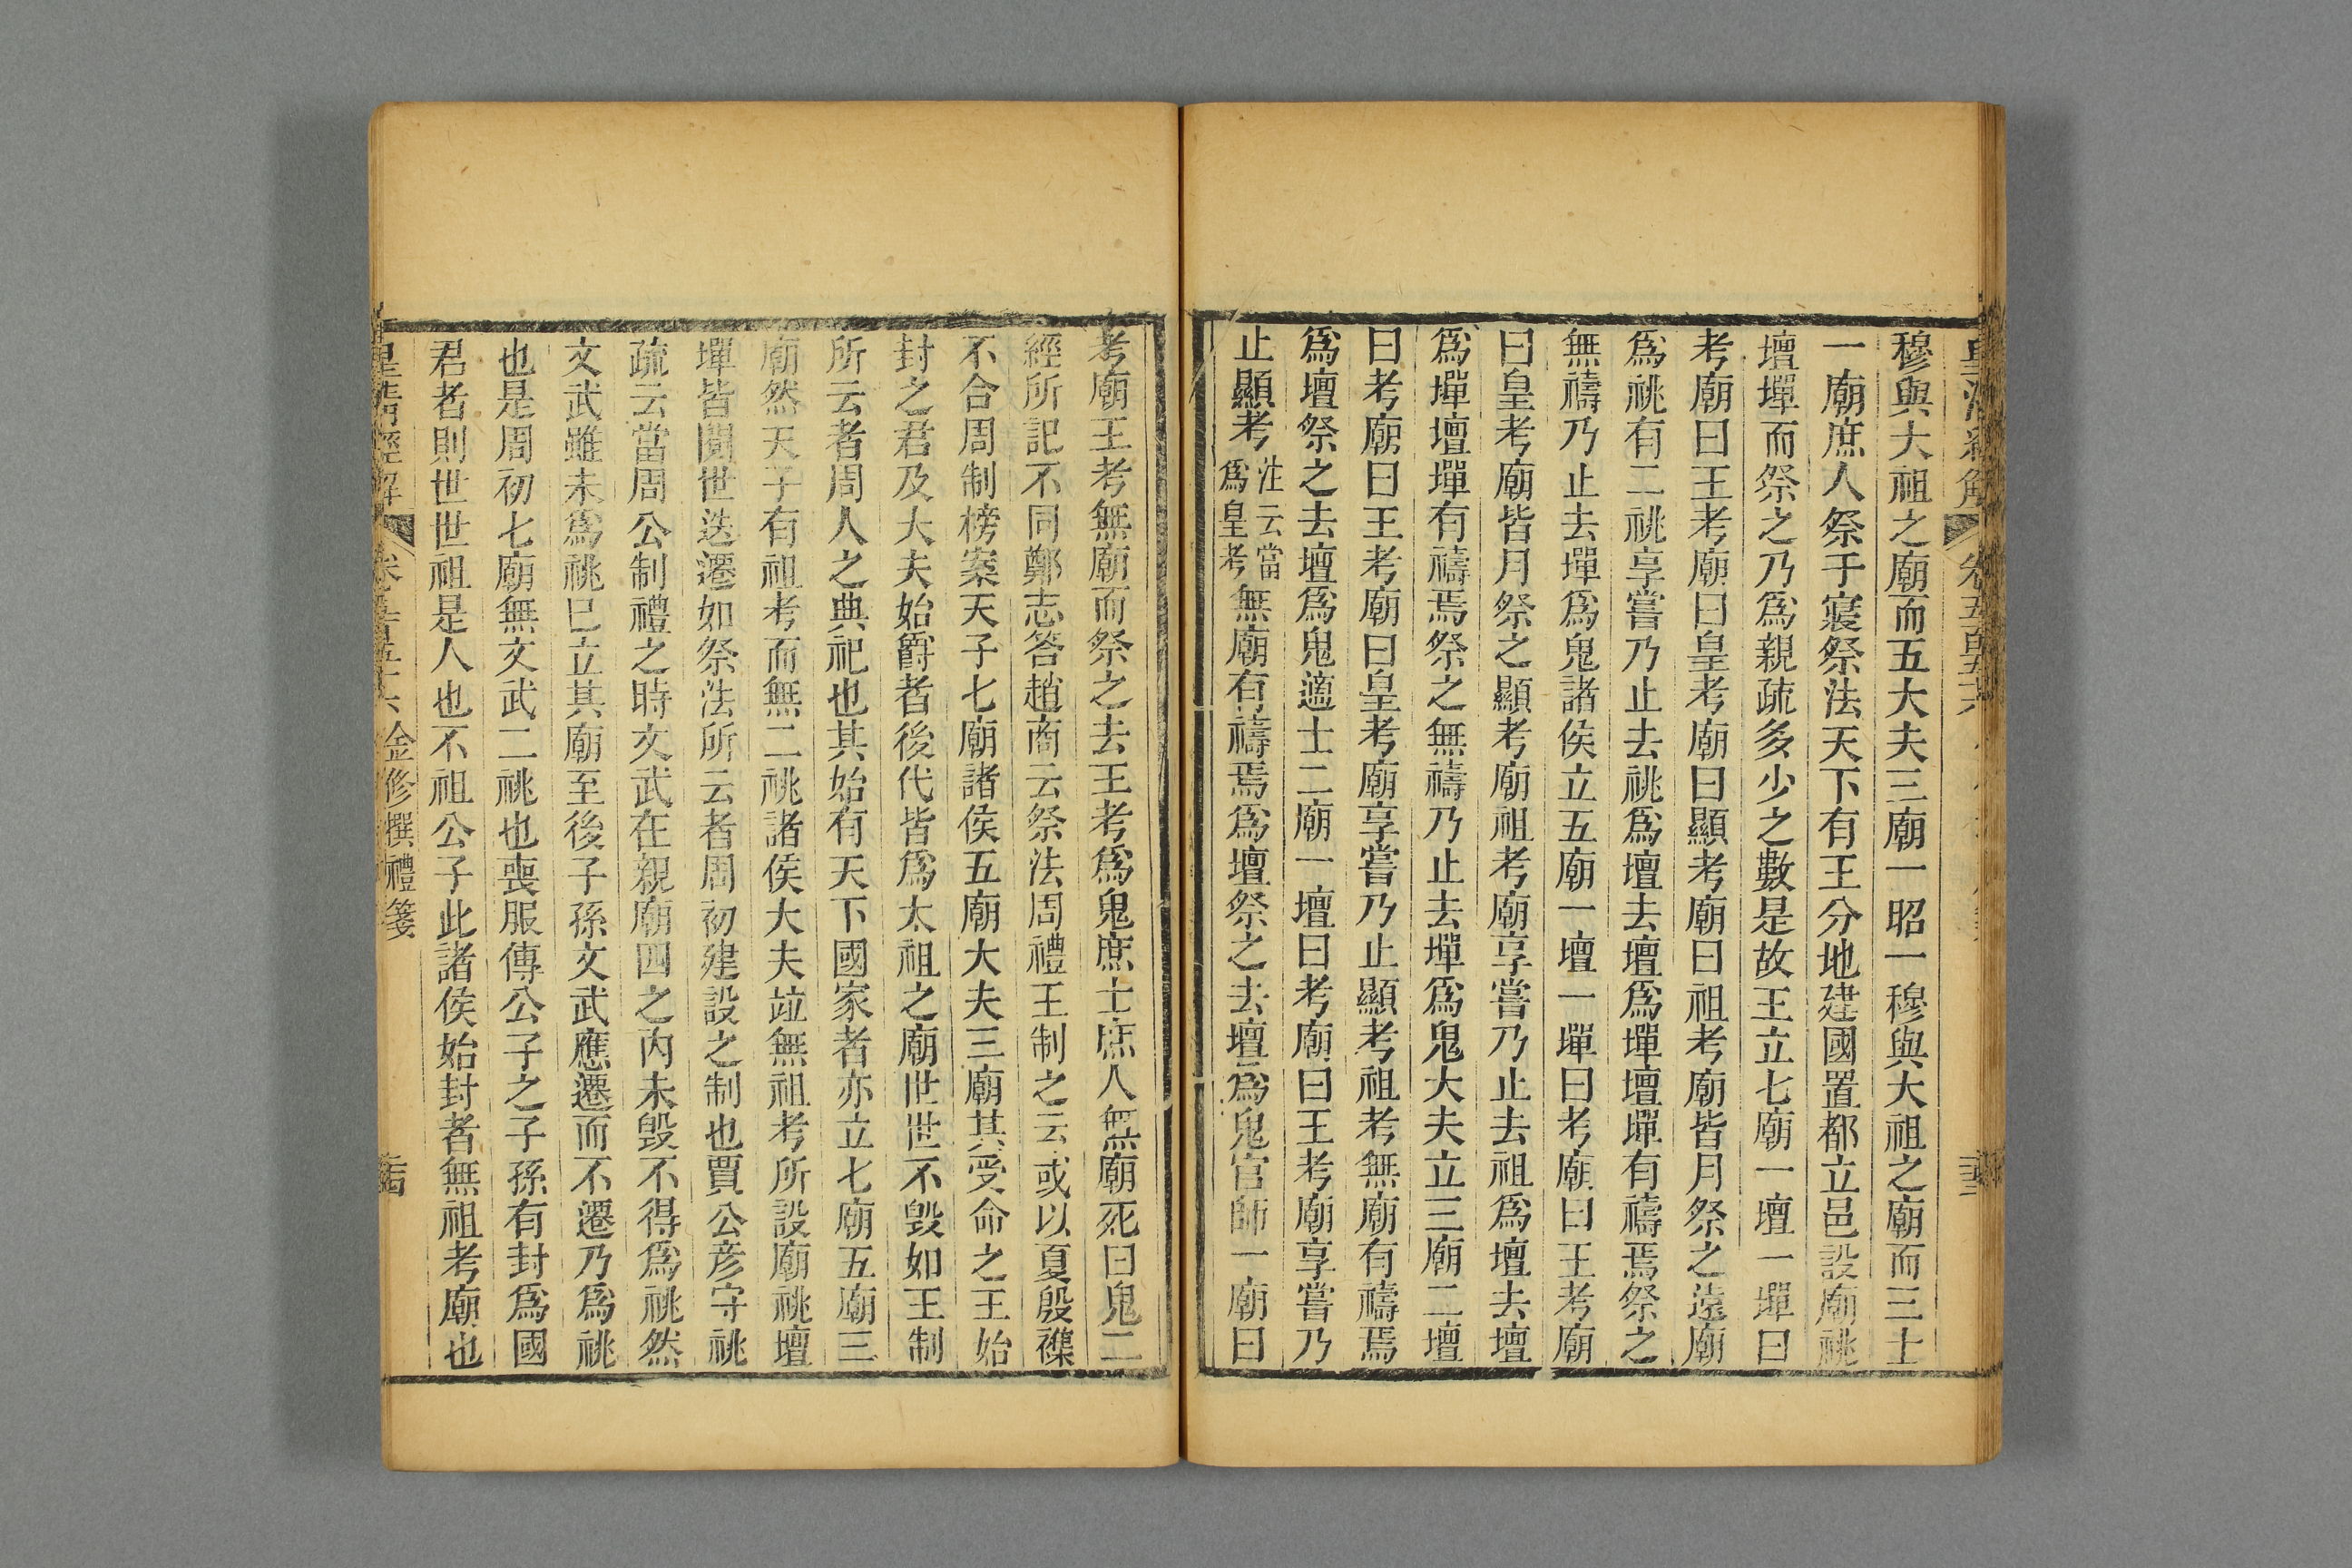 穆與大祖之廟而五大夫三廟一昭一穆與大祖之廟而三士
一廟庶人祭于寢祭法天下有王分地建國置都立邑設廟祧
壇墠而祭之乃爲親疏多少之數是故王立七廟一壇一墠曰
考廟曰王考廟曰皇考廟曰顯考廟曰祖考廟皆月祭之遠廟
爲祧有二祧享嘗乃止去祧爲壇去壇爲墠壇墠有禱焉祭之
無禱乃止去墠爲鬼諸侯立五廟一壇一墠曰考廟曰王考廟
曰皇考廟皆月祭之顯考廟祖考廟享嘗乃止去祖爲壇去壇
爲墠壇墠有禱焉祭之無禱乃止去墠爲鬼大夫立三廟二壇
曰考廟曰王考廟曰皇考廟享嘗乃止顯考祖考無廟有禱焉
爲壇祭之去壇爲鬼適士二廟一壇曰考廟曰王考廟享嘗乃
止顯考注云當爲皇考無廟有禱焉爲壇祭之去壇爲鬼官師一廟曰
考廟王考無廟而祭之去王考爲鬼庶士庶人無廟死曰鬼二
經所記不同鄭志答趙商云祭法周禮王制之云或以夏殷襍
不合周制榜案天子七廟諸侯五廟大夫三廟其受命之王始
封之君及大夫始爵者後代皆爲太祖之廟世世不毀如王制
所云者周人之典祀也其始有天下國家者亦立七廟五廟三
廟然天子有祖考而無二祧諸侯大夫竝無祖考所設廟祧壇
墠皆閱世迭遷如祭法所云者周初建設之制也賈公彥守祧
疏云當周公制禮之時文武在親廟四之內未毀不得爲祧然
文武雖未爲祧已立其廟至後子孫文武應遷而不遷乃爲祧
也是周初七廟無文武二祧也喪服傳公子之子孫有封爲國
君者則世世祖是人也不祖公子此諸侯始封者無祖考廟也
皇清經解 卷五百五十六 金修撰禮箋